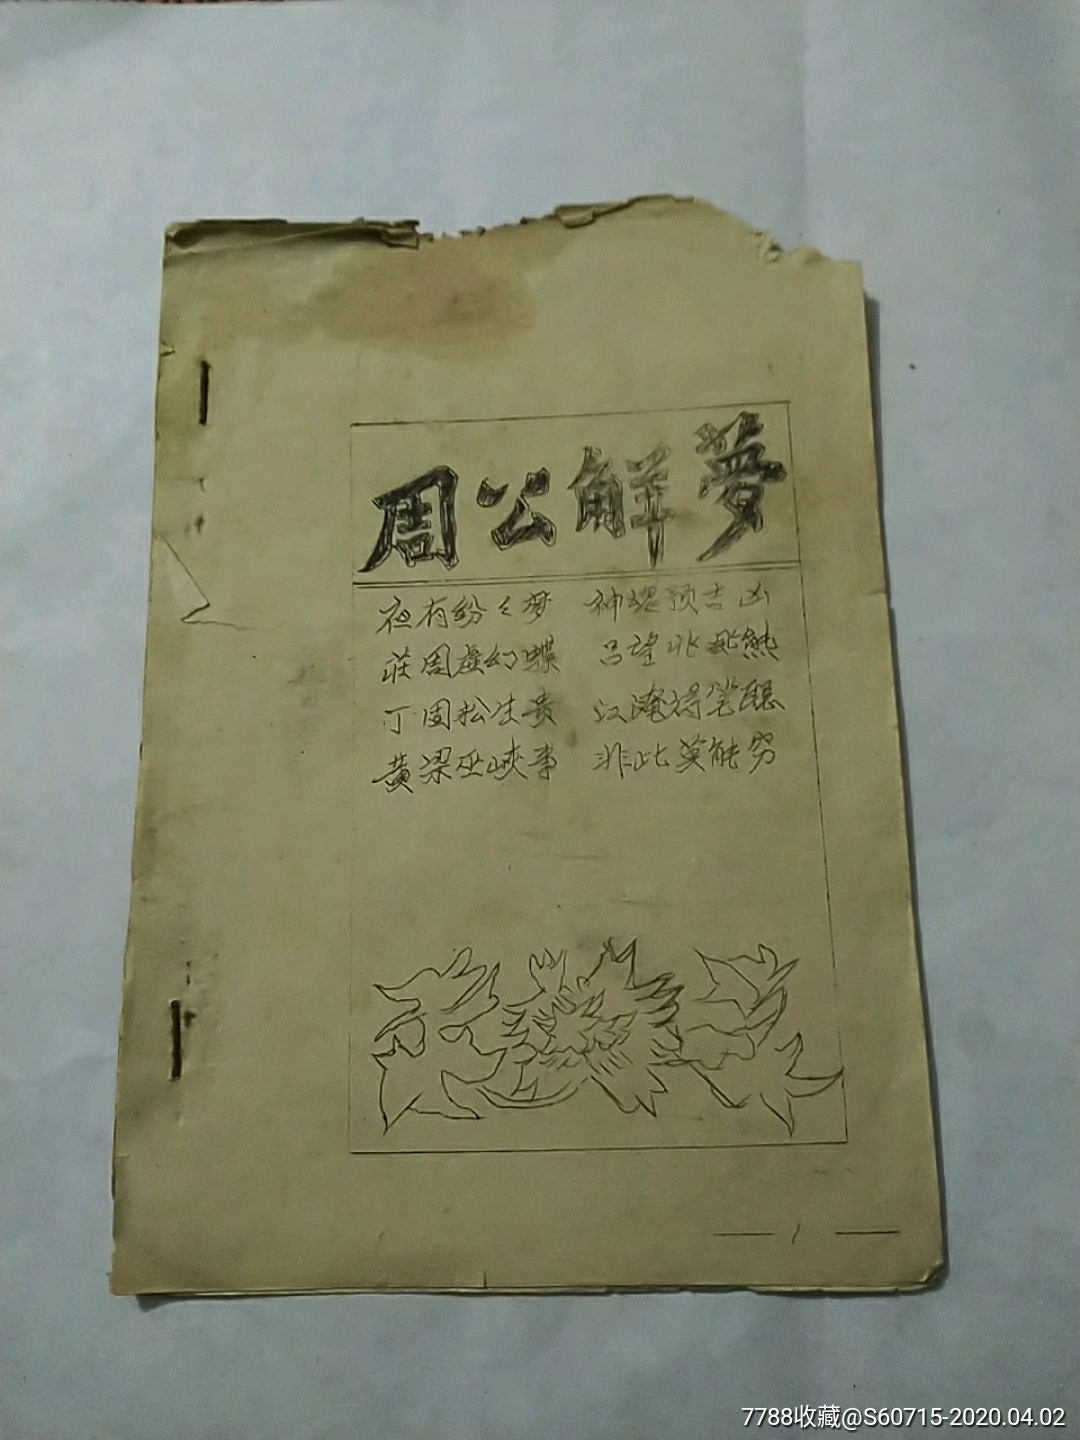 周公解夢
夜有纷々梦 神魂预吉凶
莊周虚幻蝶 吕望兆飛熊
丁固松生贵 江淹得笔聪
黄梁巫峡事 非此莫能穷
— 1 —
7788收藏@S60715-2020.04.02